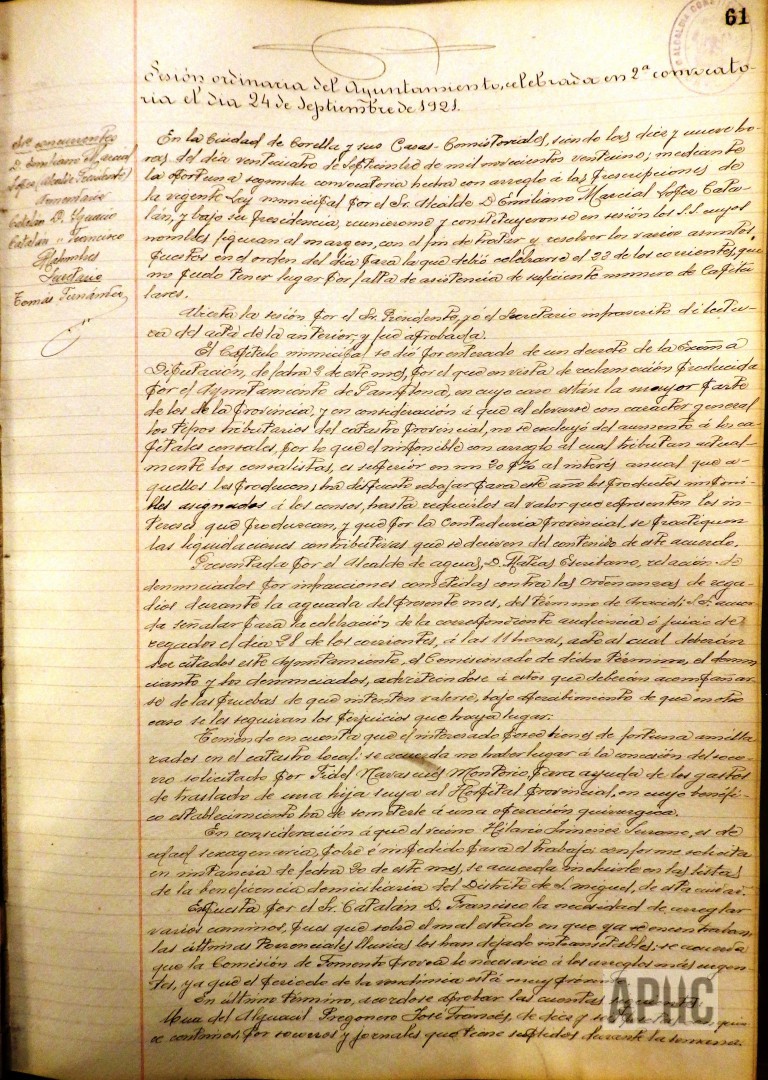 61
Sesión ordinaria del Ayuntamiento, celebrada en 2ª convocato-
ria el dia 24 de Septiembre de 1921.
Sres. concurrentes
D. Emiliano Marcial
López (Alcalde Presidente)
Armentario
Catalán D. Ignacio
Catalán " Francisco
Tomás Fernández
En la Ciudad de Corella y sus Casas-Consistoriales, siendo las diez y nueve ho-
ras del dia veinticuatro de Septiembre de mil novecientos veintiuno; mediante
la oportuna segunda convocatoria hecha con arreglo á las prescripciones de
la vigente Ley municipal por el Sr. Alcalde D. Emiliano Marcial López Cata-
lán, y bajo su Presidencia, reuniéronse y constituyeronse en sesión los S.S. cuyos
nombres figuran al margen, con el fin de tratar y resolver los varios asuntos
puestos en el orden del dia para la que debió celebrarse el 22 de los corrientes, que
no pudo tener lugar por falta de asistencia de suficiente número de Capitu-
lares.
Abierta la sesión por el Sr. Presidente, yo el Secretario infrascrito di lectu-
ra del acta de la anterior, y fué aprobada.
El Capítulo municipal se dió por enterado de un decreto de la Excma
Diputación, de fecha 2 de este mes, por el que en vista de reclamación producida
por el Ayuntamiento de Pamplona, en cuyo caso están la mayor parte
de los de la Provincia, y en consideración á que al elevarse con carácter general
los tipos tributarios del catastro provincial, no se excluyó del aumento á los ca-
pitales censales, por lo que el imponible con arreglo al cual tributan actual-
mente los censalistas, es superior en un 20 p% al interés anual que a-
quellos les producen; ha dispuesto rebajar para este año los productos imponi-
bles asignados á los censos, hasta reducirlos al valor que representen los in-
tereses que produzcan, y que por la Contaduría provincial se practiquen
las liquidaciones contributivas que se deriven del contenido de este acuerdo.
Presentada por el Alcalde de aguas, D. Matías Escribano, relación de
denunciados por infracciones cometidas contra las Ordenanzas de rega-
dios durante la aguada del presente mes, del término de Araciel; S.S. acuer-
da señalar para la celebración de la correspondiente audiencia ó juicio de
regadios el dia 28 de los corrientes, á las 11 horas, acto al cual deberán
ser citados este Ayuntamiento, el Comisionado de dicho término, el denun-
ciante y los denunciados, advirtiéndose á estos que deberán acompañar-
se de las pruebas de que intenten valerse, bajo apercibimiento de que en otro
caso se les seguiran los perjuicios que haya lugar.
Teniendo en cuenta que el interesado posee bienes de fortuna amilla-
rados en el catastro local: se acuerda no haber lugar á la concesión del soco-
rro solicitado por Fidel Navascués Monterio, para ayuda de los gastos
de traslado de una hija suya al Hospital provincial, en cuyo benéfi-
co establecimiento ha de someterse á una operación quirúrgica.
En consideración á que el vecino Hilario Jimenez Serrano, es de
edad sexagenaria, pobre é impedido para el trabajo; conforme solicita
en instancia de fecha 20 de este mes, se acuerda incluirlo en las listas
de la beneficencia domiciliaria del Distrito de S. Miguel, de esta ciudad.
Expuesta por el Sr. Catalán D. Francisco la necesidad de arreglar
varios caminos, pues que sobre el mal estado en que ya se encontraban
las últimas torrenciales lluvias los han dejado intransitables; se acuerda
que la Comisión de Fomento provea lo necesario á los arreglos más urgen-
tes, ya que el período de la vendimia está muy próximo.
En último término, acordose aprobar las cuentas
Una del Alguacil Pregonero José Francés, de diez y
ce centimos, por socorros y jornales que tiene suplidos durante la semana
APUC